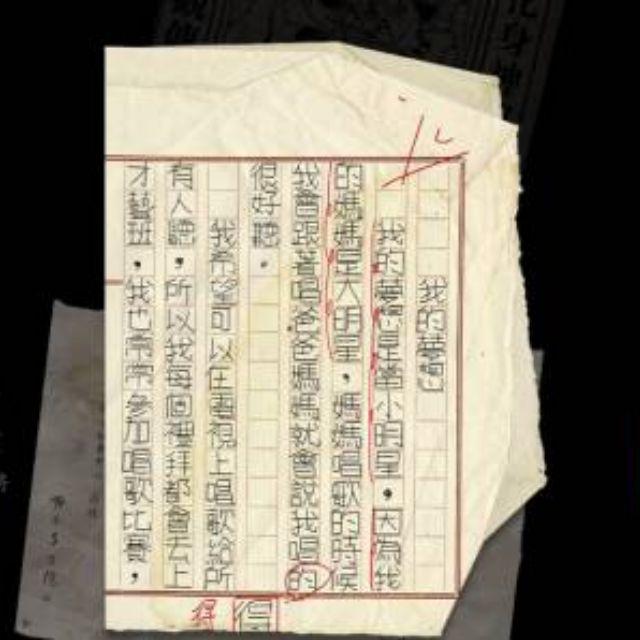 我的夢想
我的夢想是當小明星，因為我
的媽媽是大明星，媽媽唱歌的時候
我會跟著唱爸爸媽媽就會說我唱的
得
得
很好聽。
我希望可以在電視上唱歌給所
有人聽，所以我每個禮拜都會去上
才藝班，我也常常參加唱歌比賽，